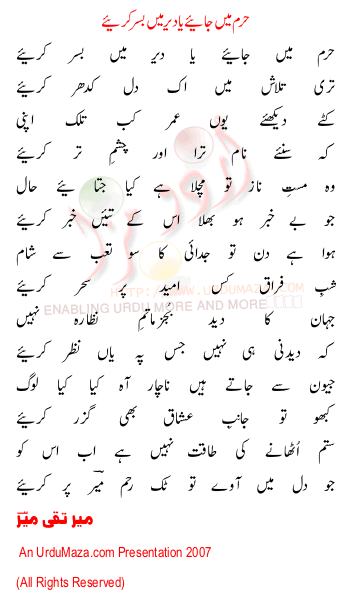 حرم میں جائیے یا دیر میں بسر کرئیے
حرم میں جائیے یا دیر میں بسر کرئیے
تری تلاش میں اک دل کدھر کدھر کرئیے
کٹے دیکھئے یوں عمر کب تلک اپنی
کہ سنئے نام ترا اور چشم تر کرئیے
وہ مستِ ناز تو مچلا ہے کیا جتائیے حال
جو بے خبر ہو بھلا اس کے تئیں خبر کرئیے
ہوا ہے دن تو جدائی کا سو تعب سے شام
شبِ فراق کس امید پر سحر کرئیے
جہان کا دید بجز ماتمِ نظارہ نہیں
کہ دیدنی ہی نہیں جس پہ یاں نظر کرئیے
جیون سے جاتے ہیں ناچار آہ کیا کیا لوگ
کبھو تو جانبِ عشاق بھی گزر کرئیے
ستم اُٹھانے کی طاقت نہیں ہے اب اس کو
جو دل میں آوے تو ٹک رحم میرؔ پر کرئیے
میر تقی میرؔ
اردو مزا
HTTP://WWW.URDUMAZA.COM
ENABLING URDU MORE AND MORE
An UrduMaza.com Presentation 2007
(All Rights Reserved)